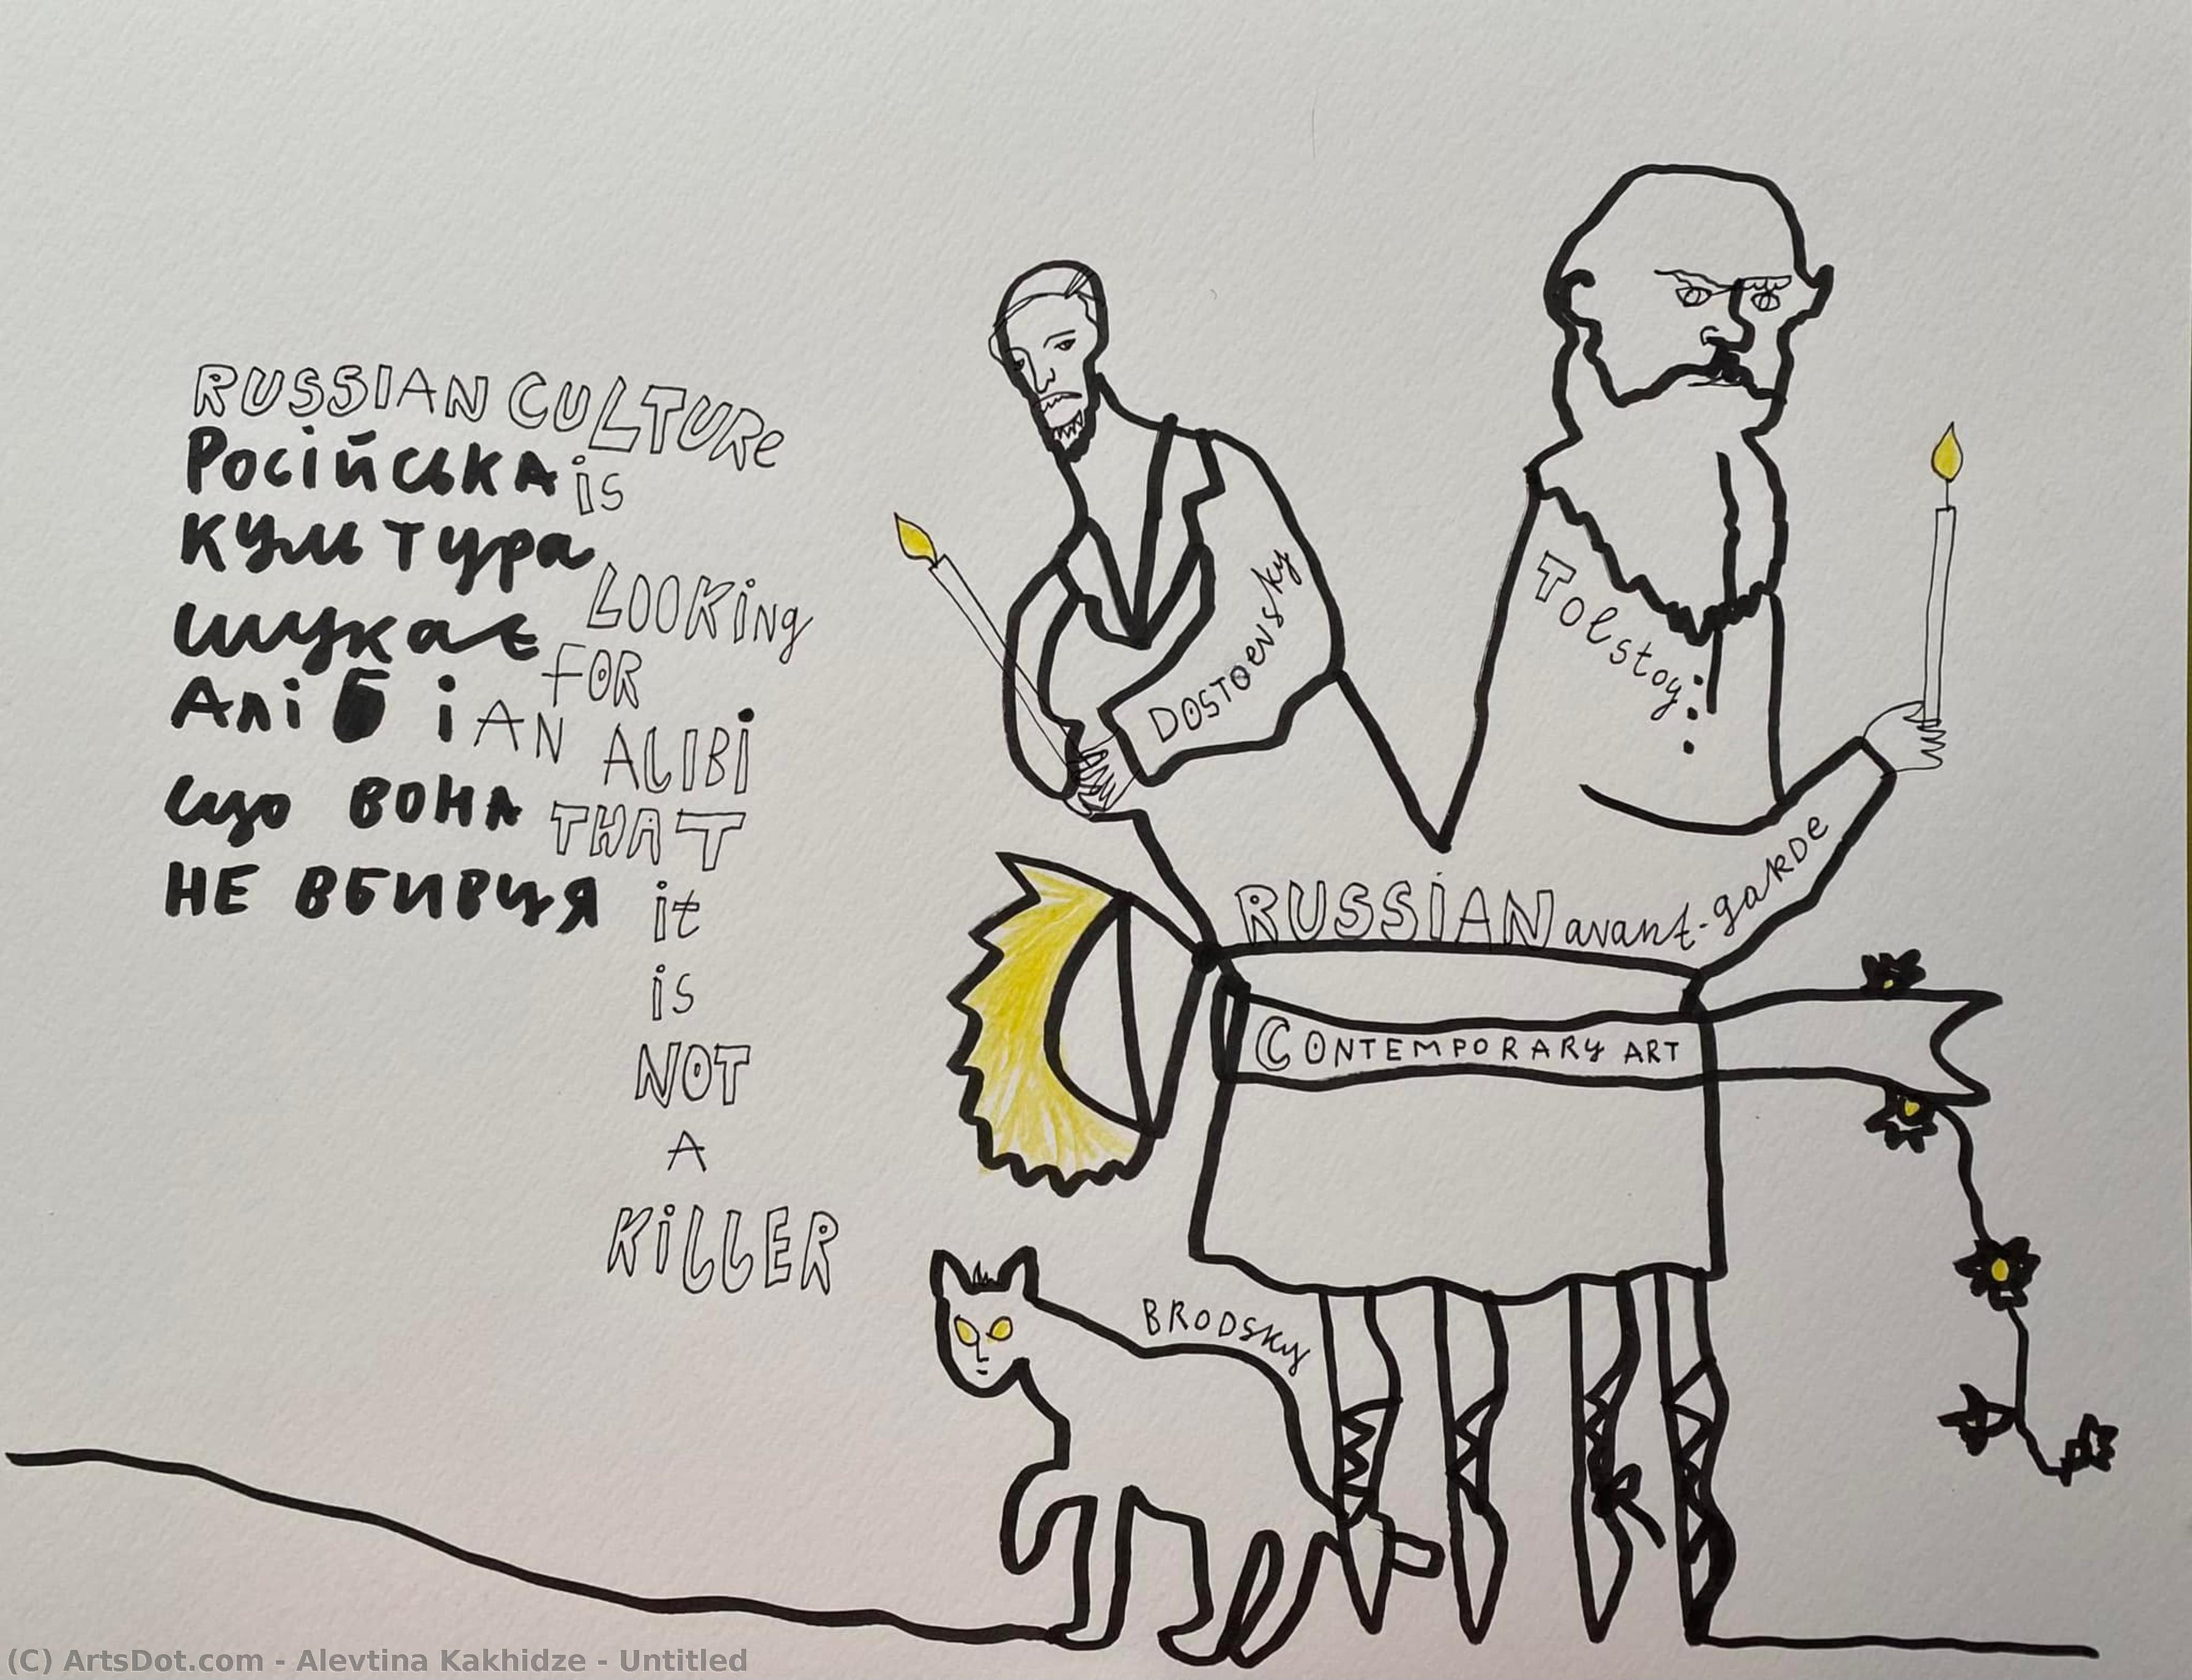 RUSSIAN CULTURE
Російська
культура
шукає
Алібі
що вона
НЕ ВБИВЦЯ
is
LOOKing
FOR
AN ALIBi
THAT
it
is
NOT
A
KiLLER
DOSTOEVSKY
Tolstoy
RUSSIAN avant-garde
CONTEMPORARY ART
BRODSKY
(C) ArtsDot.com - Alevtina Kakhidze - Untitled